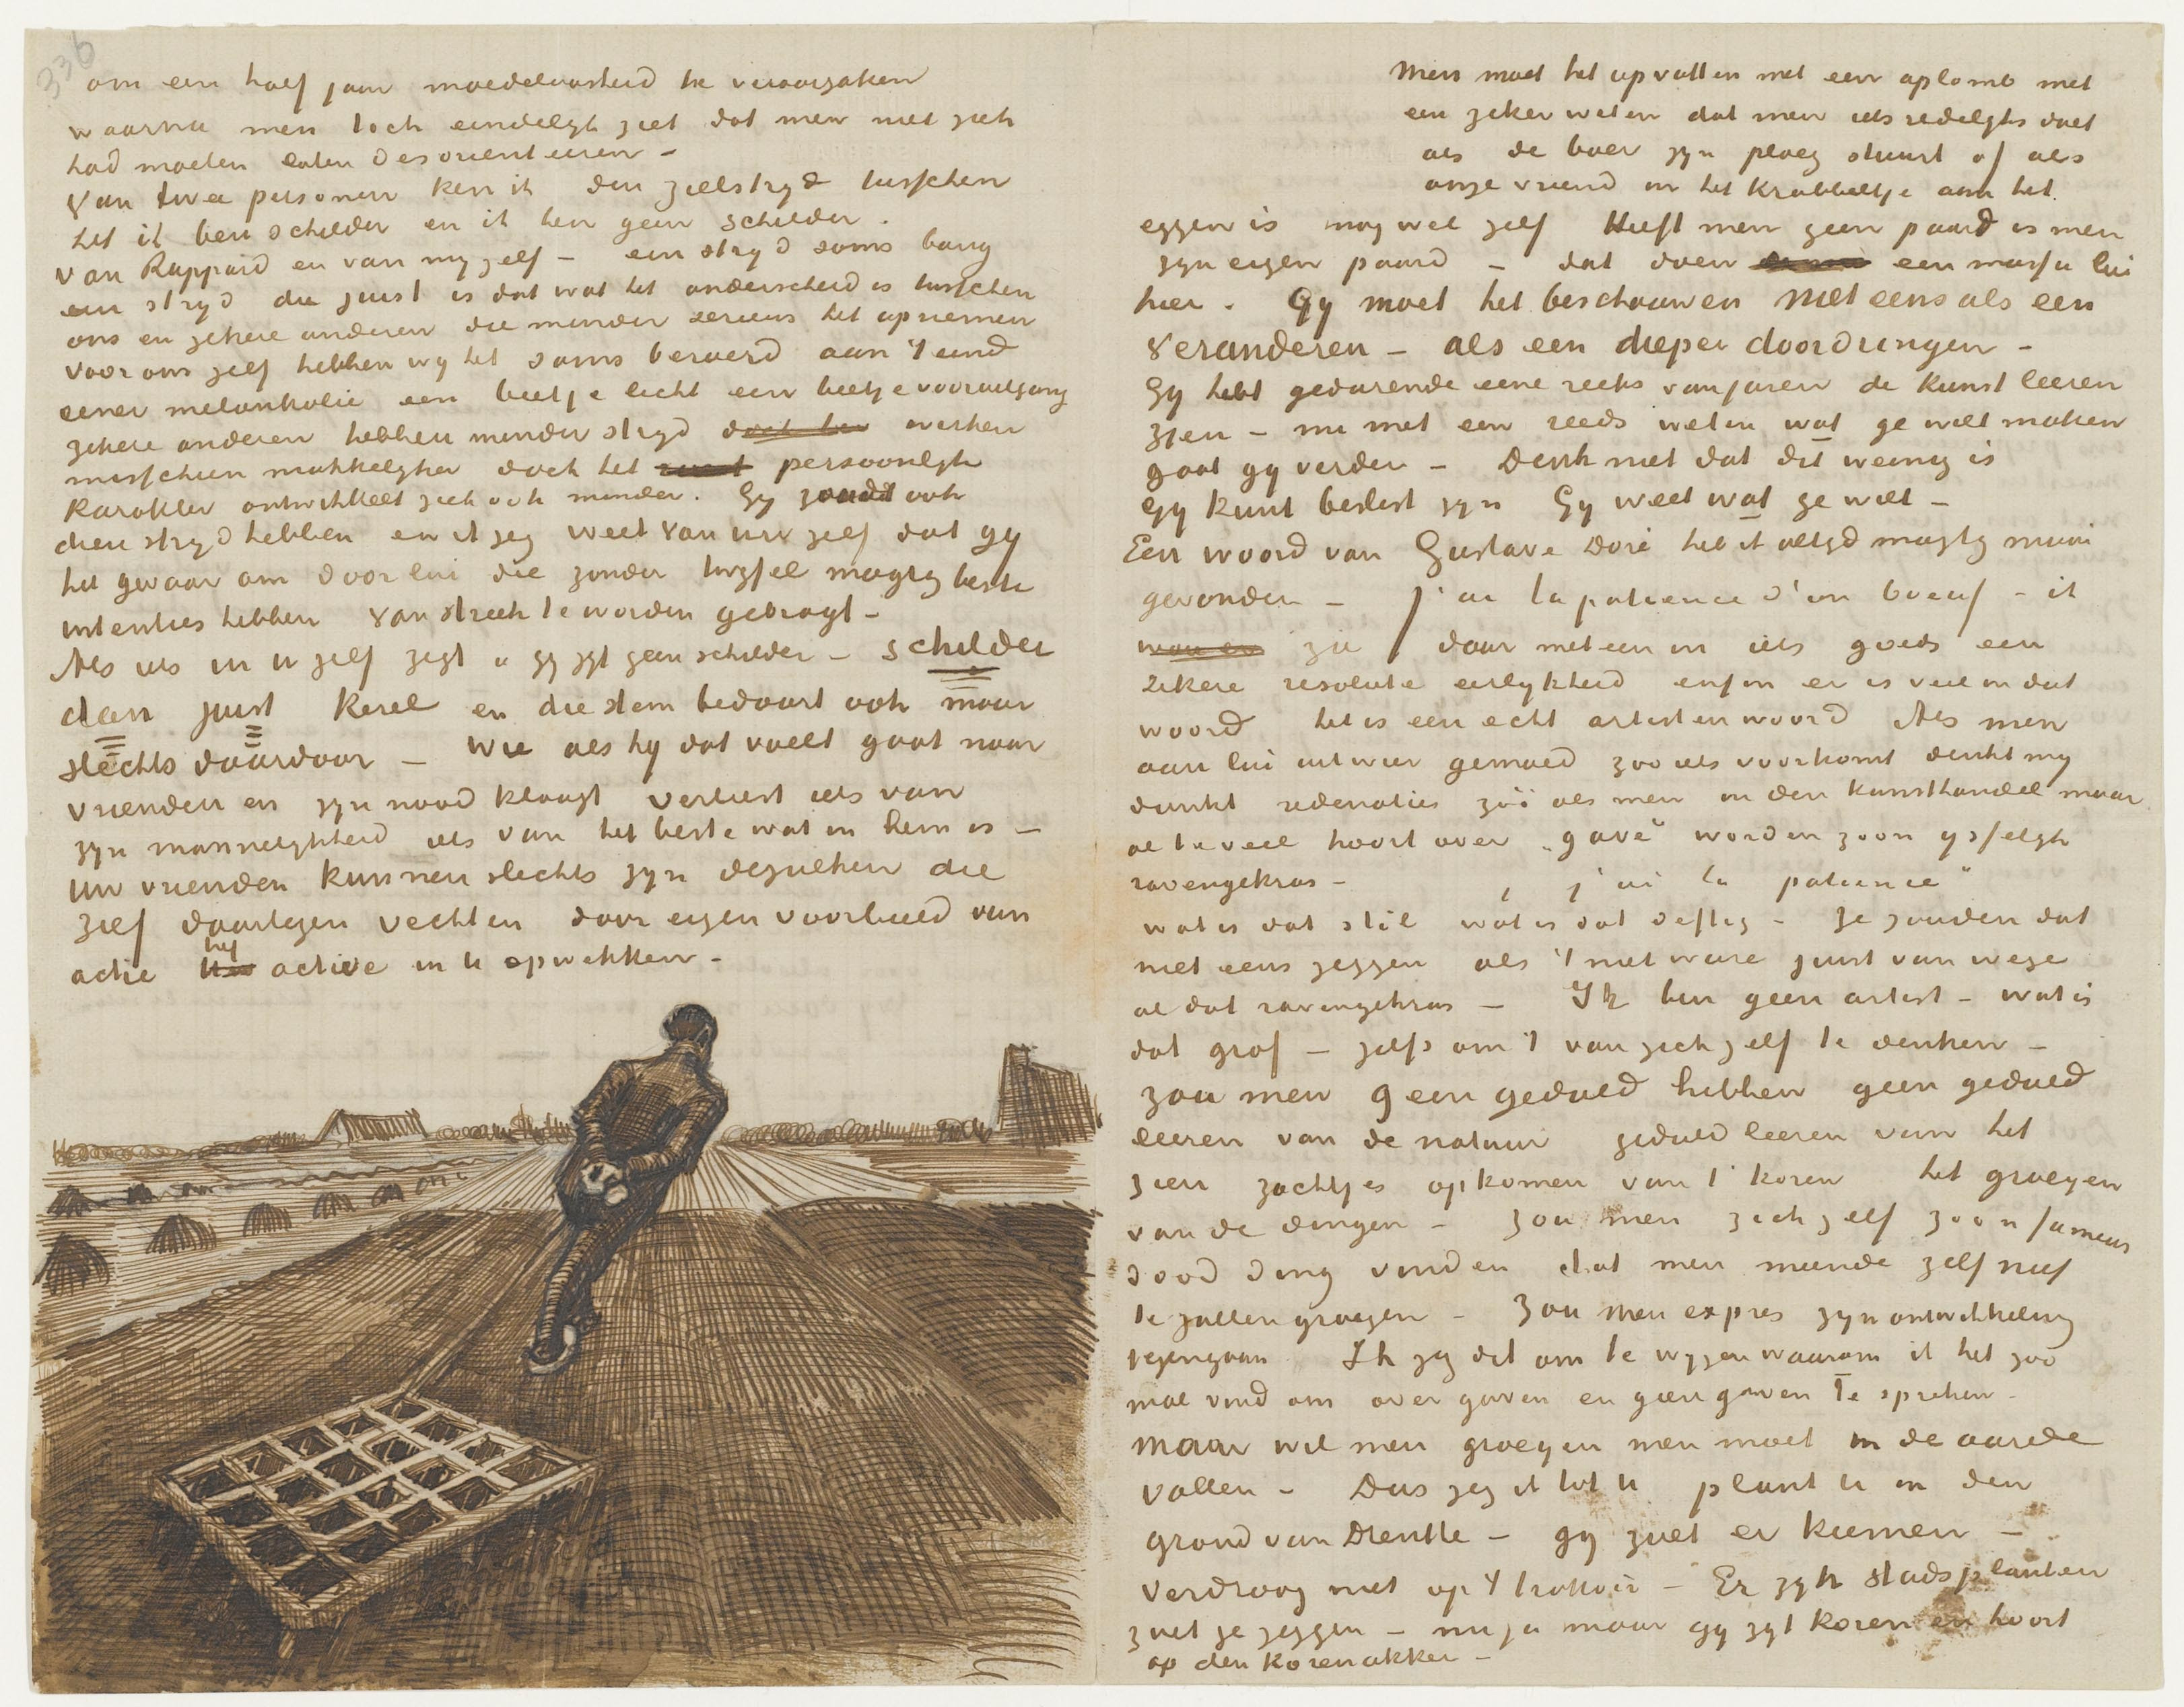 336
om een half jaar moedeloosheid te veroorzaken
waarna men toch eindelyk ziet dat men niet zich
had moeten laten desorienteeren –
Van twee personen ken ik den zielstryd tusschen
het ik ben schilder en ik ben geen schilder.
Van Rappard en van my zelf – een stryd soms bang
een stryd die juist is dat wat het onderscheid is tusschen
ons en zekere anderen die minder serieus het opnemen
voor ons zelf hebben wy het soms beroerd aan 't eind
eener melankolie een beetje licht een beetje vooruitgang
zekere anderen hebben minder stryd werken
misschien makkelyker doch het persoonlyk
karakter ontwikkelt zich ook minder. Gy zoudt ook
dien stryd hebben en ik zeg weet van uw zelf dat gy
het gevaar om door lui die zonder twyfel magtig beste
intenties hebben van streek te worden gebragt –
Als iets in u zelf zegt „gy zyt geen schilder – schilder
dan juist kerel en die stem bedaart ook maar
slechts daardoor – Wie als hy dat voelt gaat naar
vrienden en zyn nood klaagt verliest iets van
zyn mannelykheid iets van het beste wat in hem is –
Uw vrienden kunnen slechts zyn dezulken die
zelf daartegen vechten door eigen voorbeeld van
actie het active in u opwekken –
Men moet het opvatten met een aplomb met
een zeker weten dat men iets redelyks doet
als de boer zyn ploeg stuurt of als
onze vriend in het krabbeltje aan het
eggen is nog wel zelf Heeft men geen paard is men
zyn eigen paard – dat doen een massa lui
hier. Gy moet het beschouwen niet eens als een
veranderen – als een dieper doordringen –
Gy hebt gedurende eene reeks van jaren de kunst leeren
zien – nu met een reeds weten wat ge wilt maken
gaat gy verder – Denk niet dat dit weinig is
Gy kunt beslist zyn Gy weet wat ge wilt –
Een woord van Gustave Doré heb ik altyd magtig mooi
gevonden – j'ai la patience d'un boeuf – ik
zie daar meteen in iets goeds een
zekere resolute eerlykheid enfin er is veel in dat
woord het is een echt artistenwoord Als men
aan lui uit wier gemoed zoo iets voorkomt denkt my
dunkt redenaties zóó als men in den kunsthandel maar
al te veel hoort over „gave” worden zoon ysselyk
ravengekras – „j'ai la patience”
wat is dat stil wat is dat deftig – Ze zouden dat
niet eens zeggen als 't niet ware juist van wege
al dat ravengekras – Ik ben geen artist – wat is
dat grof – zelfs om 't van zich zelf te denken –
zou men geen geduld hebben geen geduld
leeren van de natuur geduld leeren van het
zien zachtjes opkomen van 't koren het groeyen
van de dingen – zou men zich zelf zoo'n fameus
dood ding vinden dat men meende zelf niet
te zullen groeyen – Zou men expres zyn ontwikkeling
tegengaan Ik zeg dit om te wyzen waarom ik het zoo
mal vind om over gaven en geen gaven te spreken –
Maar wil men groeyen men moet in de aarde
vallen – Dus zeg ik tot u plant u in den
grond van Drenthe – gy zult er kiemen –
Verdroog niet op 't trottoir – Er zyn stadsplanten
zult ge zeggen – nu ja maar gy zyt koren en hoort
op den korenakker –